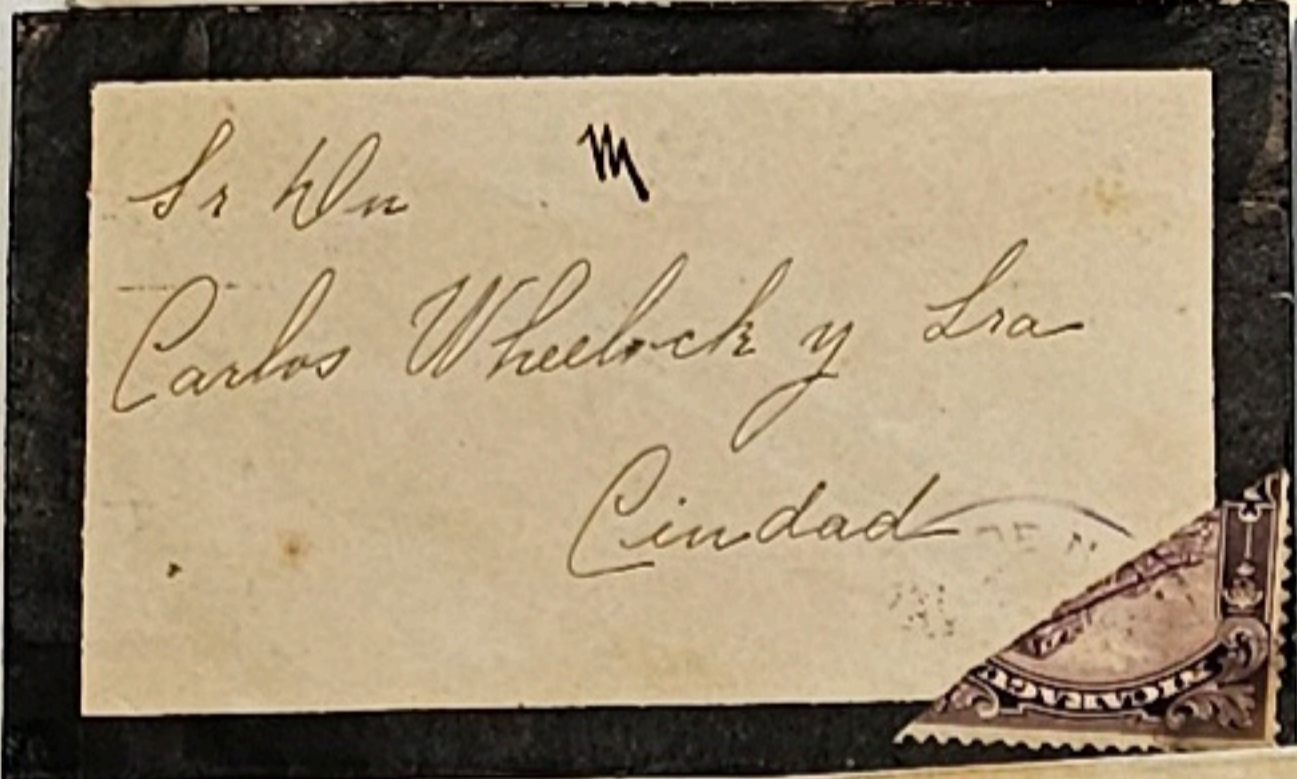 Sr Dn
Carlos Wheelock y Sra
Ciudad
NICARAGU